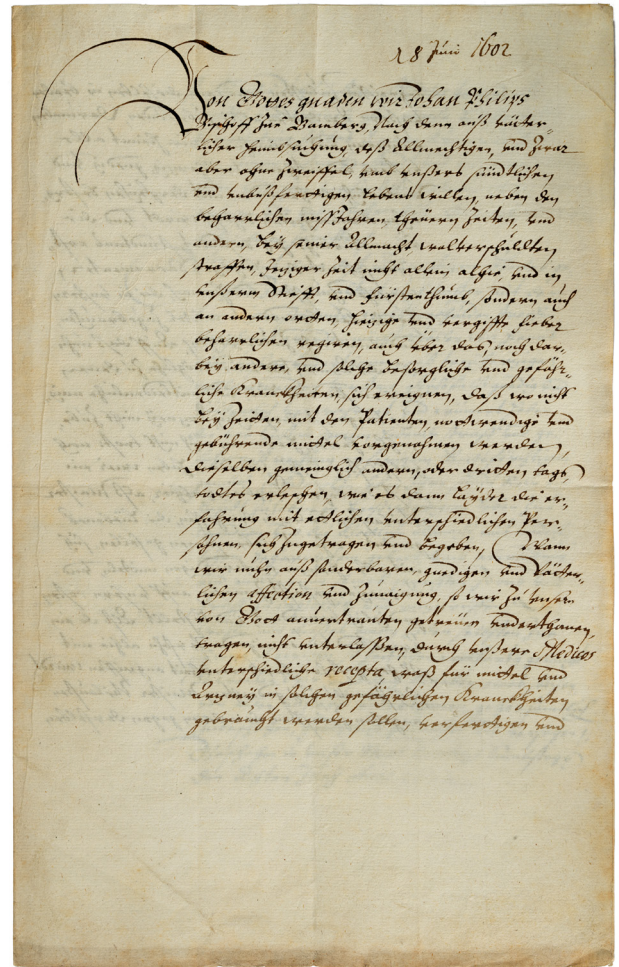 18 Juni 1602
Von Gottes gnaden wir Johan Philips
Bischoff zue Bamberg, Nach deme auß vätter-
licher heimbsuchung, deß Allmechtigen, und zwar
aber ohne zweiffel, umb unßers sündtlichen
und unbußfertigen lebens willen, neben den
beharrlichen mißJahren, theuern zeiten, und
andern, bey seiner Allmacht wolverschuldten
straffen, Jeziger zeit nicht allein alhie und in
unßerm Stifft, und fürstenthumb, sondern auch
an andern orthen, hiezige und vergiffte fieber
beharrlichen regiren, auch uber das, noch dar-
bey, andere, und solche besorgliche und gefähr-
liche Kranckheiten, sich ereignen, daß wo nicht
bey zeitten, mit den Patienten, nottwendige und
gebührende mittel vorgenohmen werden,
dieselben gemeinglich andern, oder dritten tags,
todtes erleschen, wie es dann layder die er-
fahrung mit ettlichen unterschiedlichen Per-
sohnen, sich zugetragen und begeben, Wann
wir nuhn auß sonderbaren, gnedigen und Vätter-
lichen affection und zunaigung, so wir zu unsern
von Gott anvertrauten getreuen underthanen,
tragen, nicht unterlaßen, durch unßere Medicos
unterschiedliche recepta, waß für mittel und
Artzney in solchen gefährlichen Kranckheiten
gebraucht werden sollen, verfertigen und